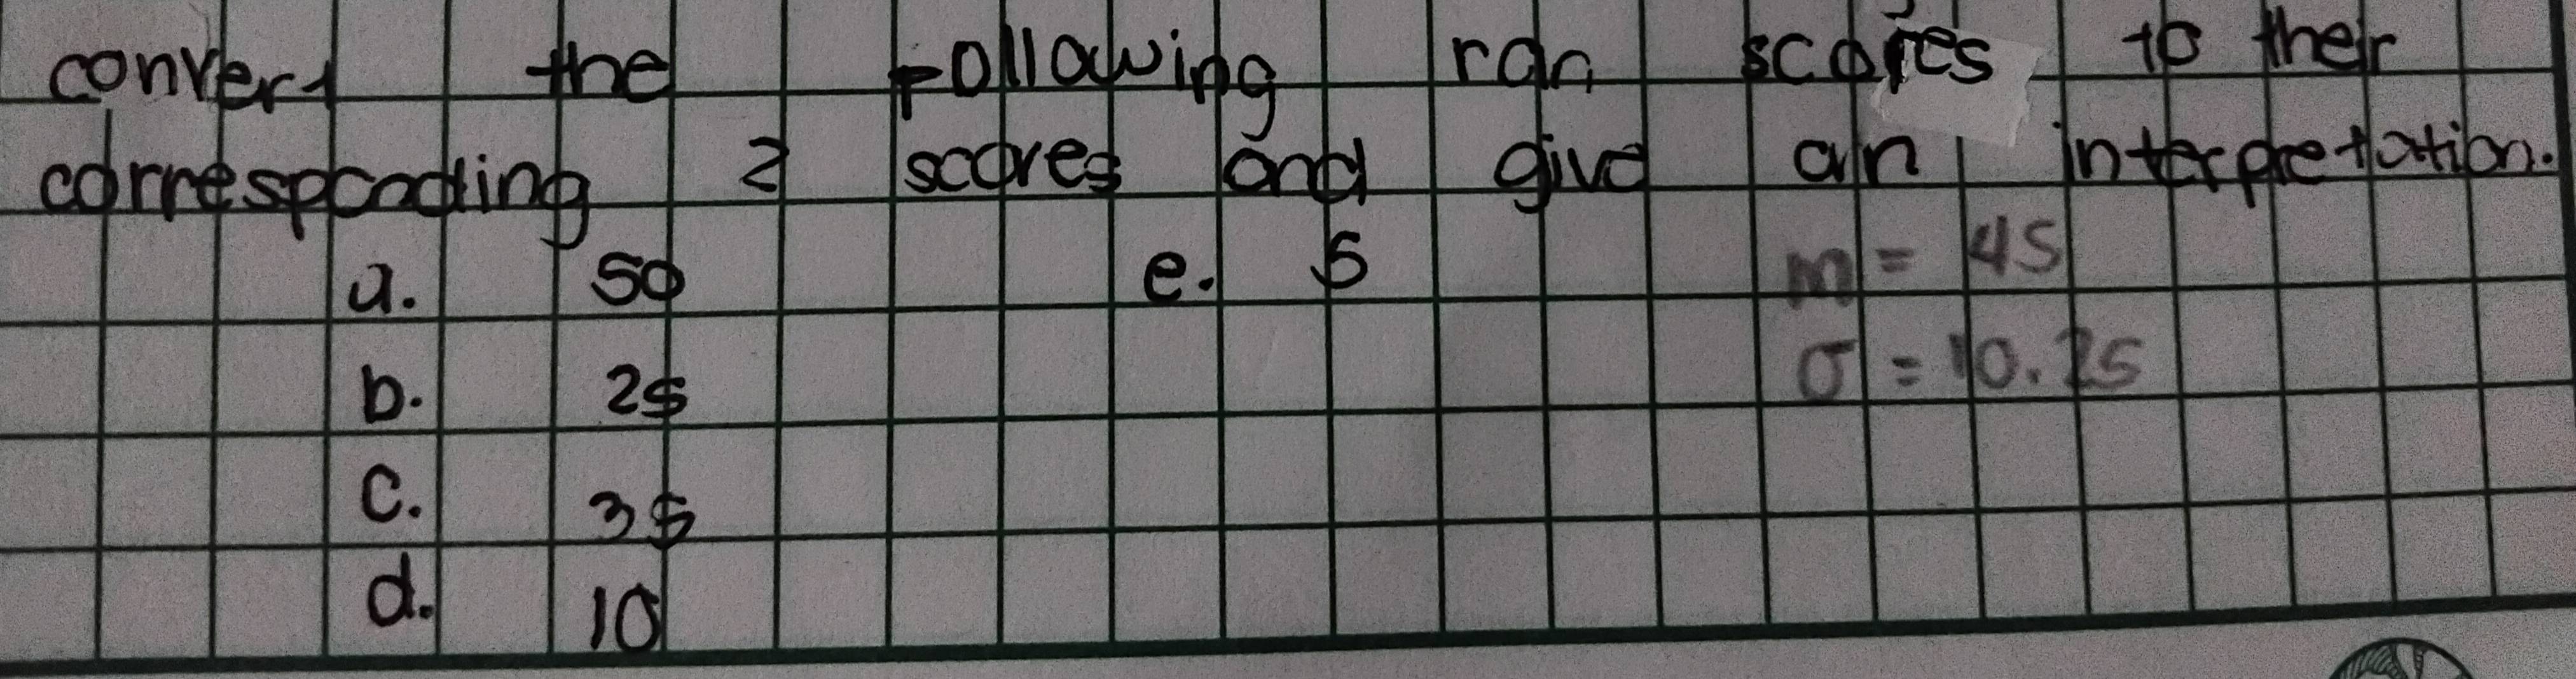 convert the following ran scores to ther
corresponding z scores and give an interpretation.
a. 50 e. 5 m = 45
b. 25 σ = 10.25
c. 35
d. 10